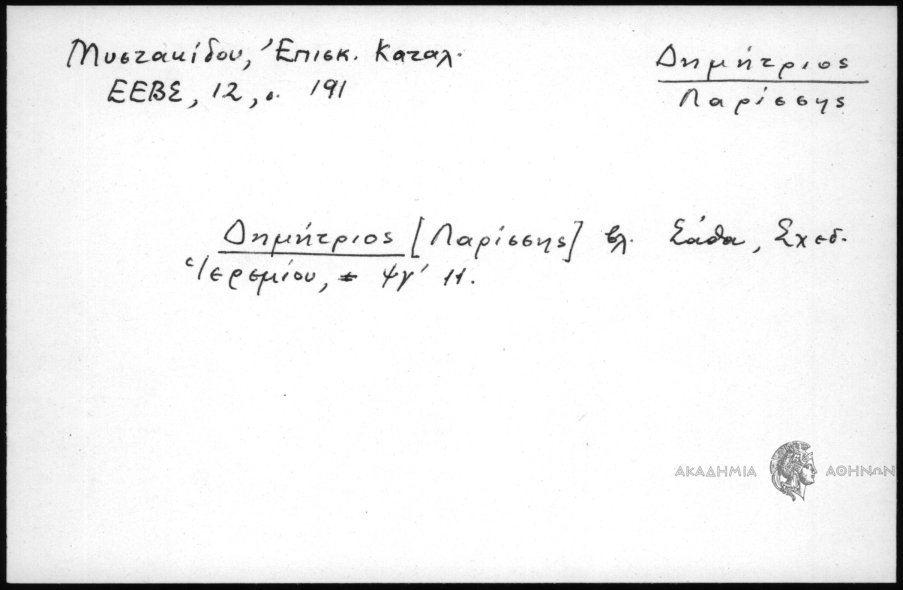 Μυστακίδου, Ἐπισκ. Καταλ.
ΕΕΒΣ, 12, σ. 191
Δημήτριος
Λαρίσσης
Δημήτριος [Λαρίσσης] βλ. Σάθα, Σχεδ.
Ἱερεμίου, σ. ϟγ' 11.
ΑΚΑΔΗΜΙΑ ΑΘΗΝΩΝ